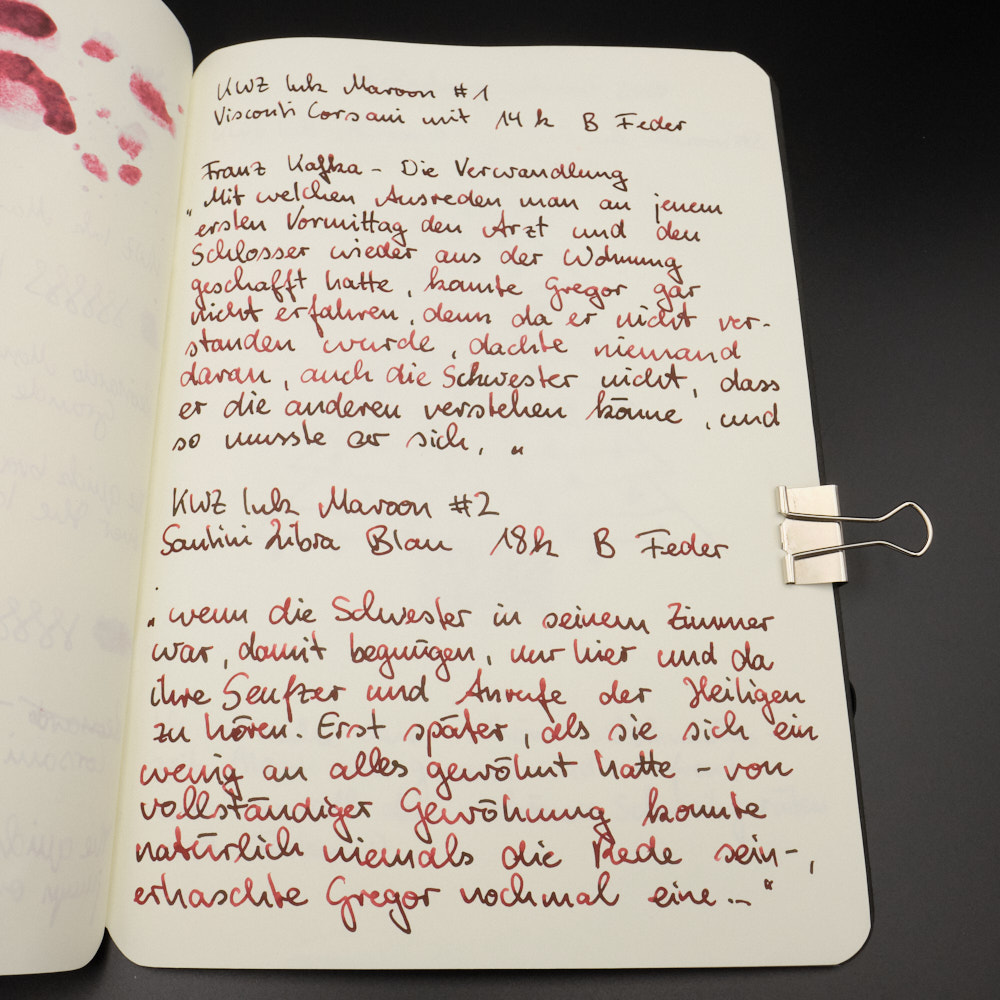 KWZ Ink Maroon #1
Visconti Corsani mit 14k B Feder
Franz Kafka - Die Verwandlung
"Mit welchen Ausreden man an jenem
ersten Vormittag den Arzt und den
Schlosser wieder aus der Wohnung
geschafft hatte, konnte Gregor gar
nicht erfahren, denn da er nicht ver-
standen wurde, dachte niemand
daran, auch die Schwester nicht, dass
er die anderen verstehen könne, und
so musste er sich, "
KWZ Ink Maroon #2
Santini Libra Blau 18k B Feder
"wenn die Schwester in seinem Zimmer
war, damit begnügen, nur hier und da
ihre Seufzer und Anrufe der Heiligen
zu hören. Erst später, als sie sich ein
wenig an alles gewöhnt hatte - von
vollständiger Gewöhnung konnte
natürlich niemals die Rede sein-,
erhaschte Gregor nochmal eine..."